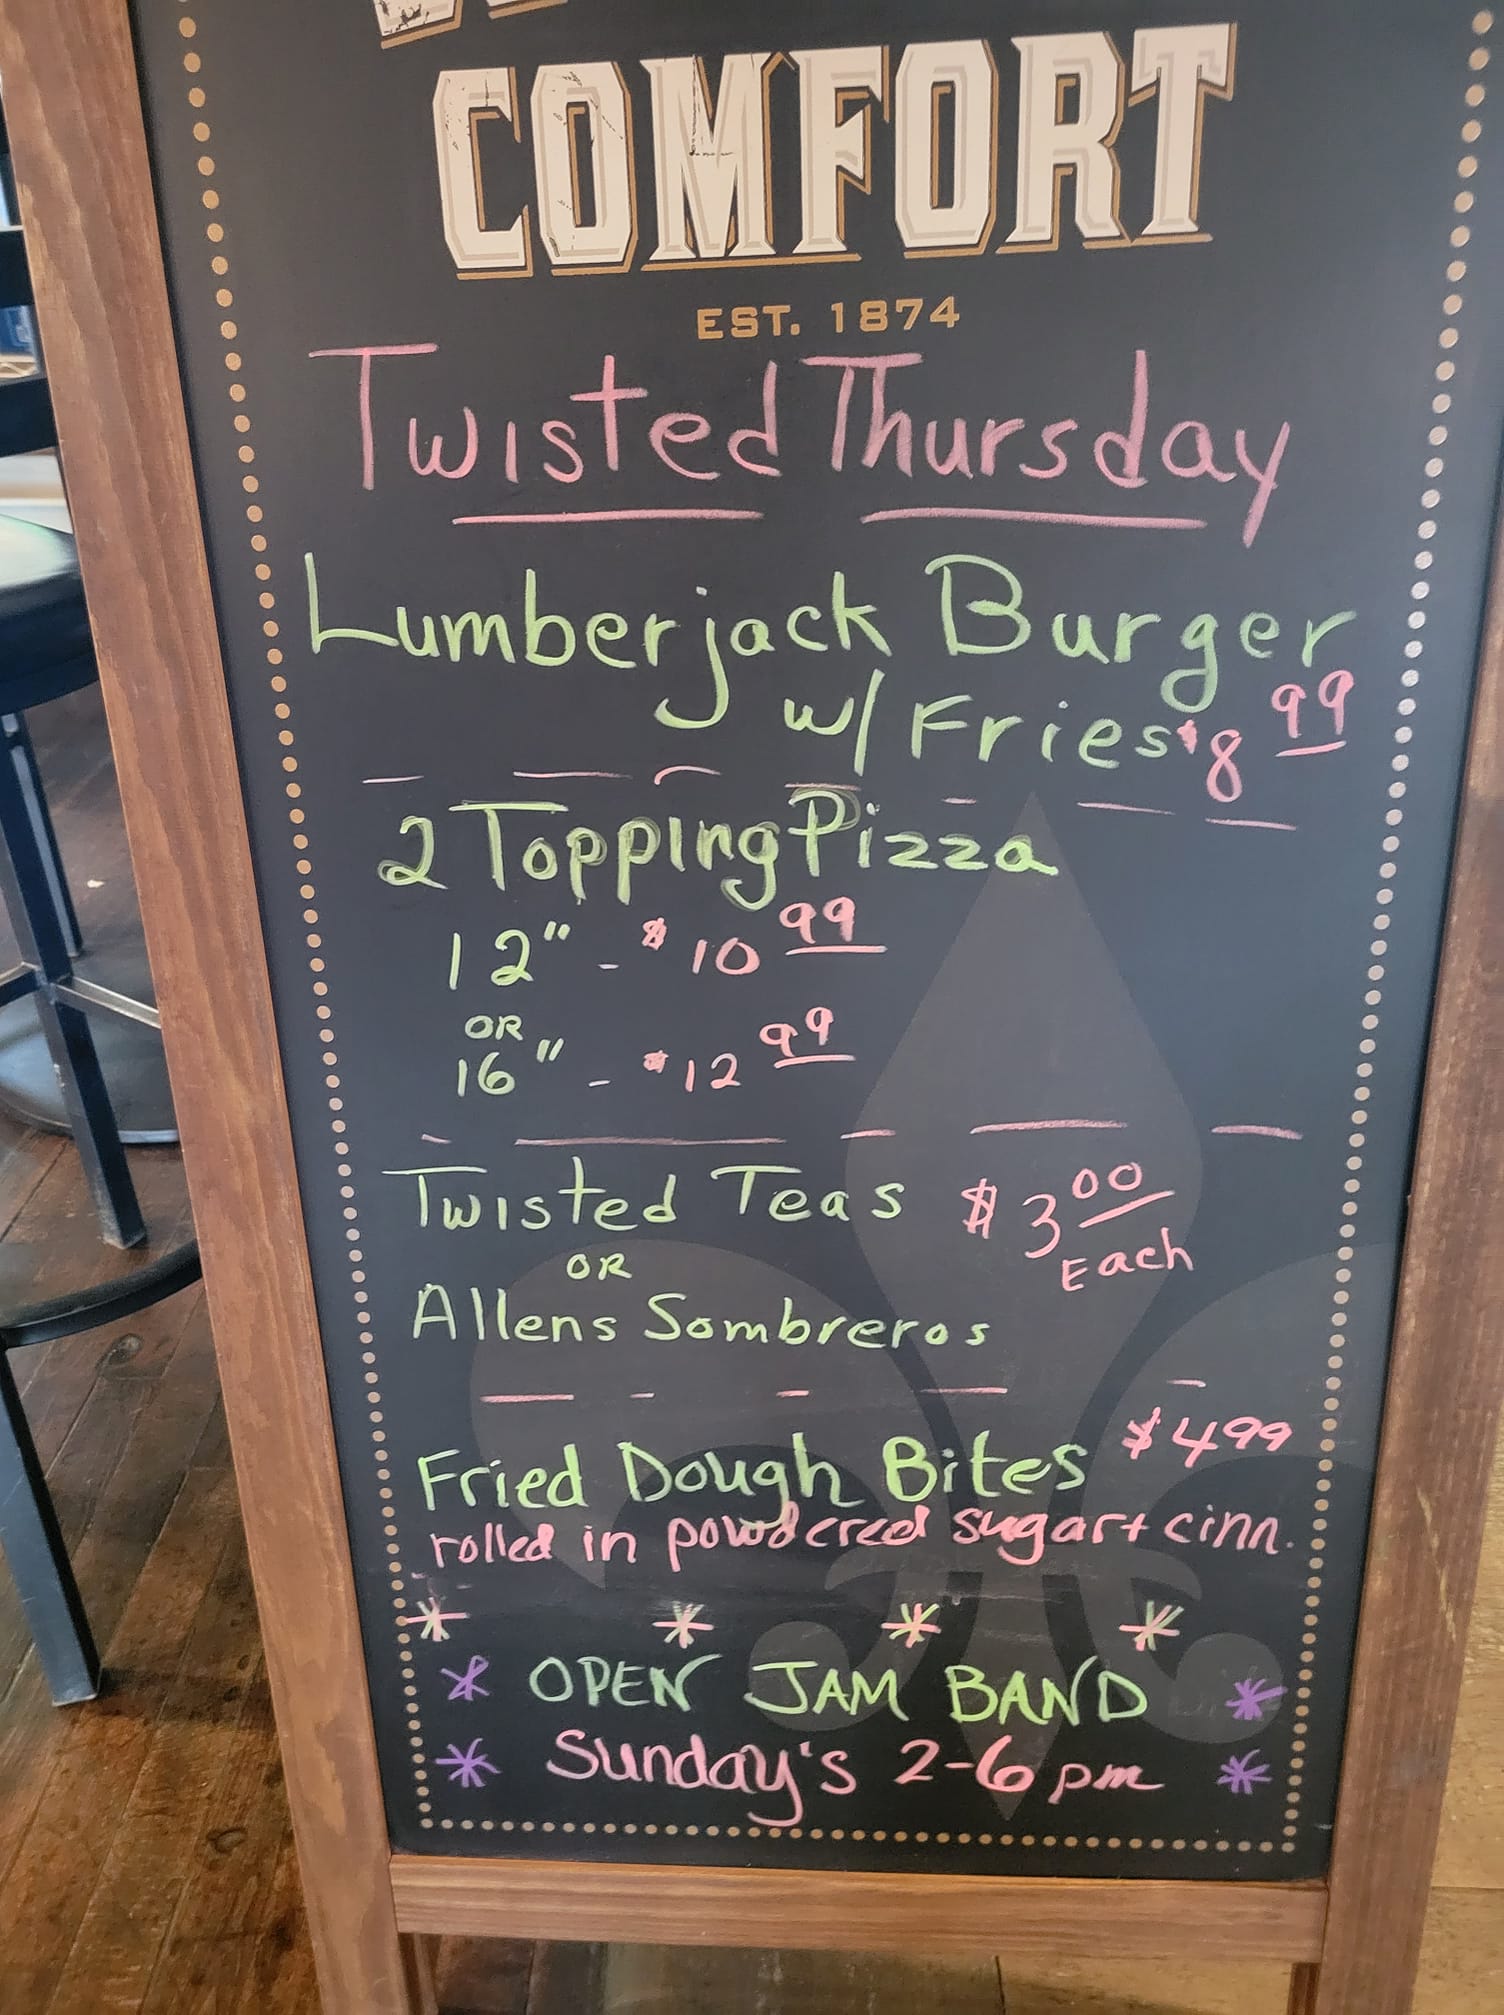 COMFORT
EST. 1874
Twisted Thursday
Lumberjack Burger
w/ Fries $8 99
2 Topping Pizza
12" - $10 99
OR
16" - $12 99
Twisted Teas $3 00
OR Each
Allens Sombreros
Fried Dough Bites $4 99
rolled in powdered sugar + cinn.
* * * *
* OPEN JAM BAND *
* Sunday's 2-6 pm *